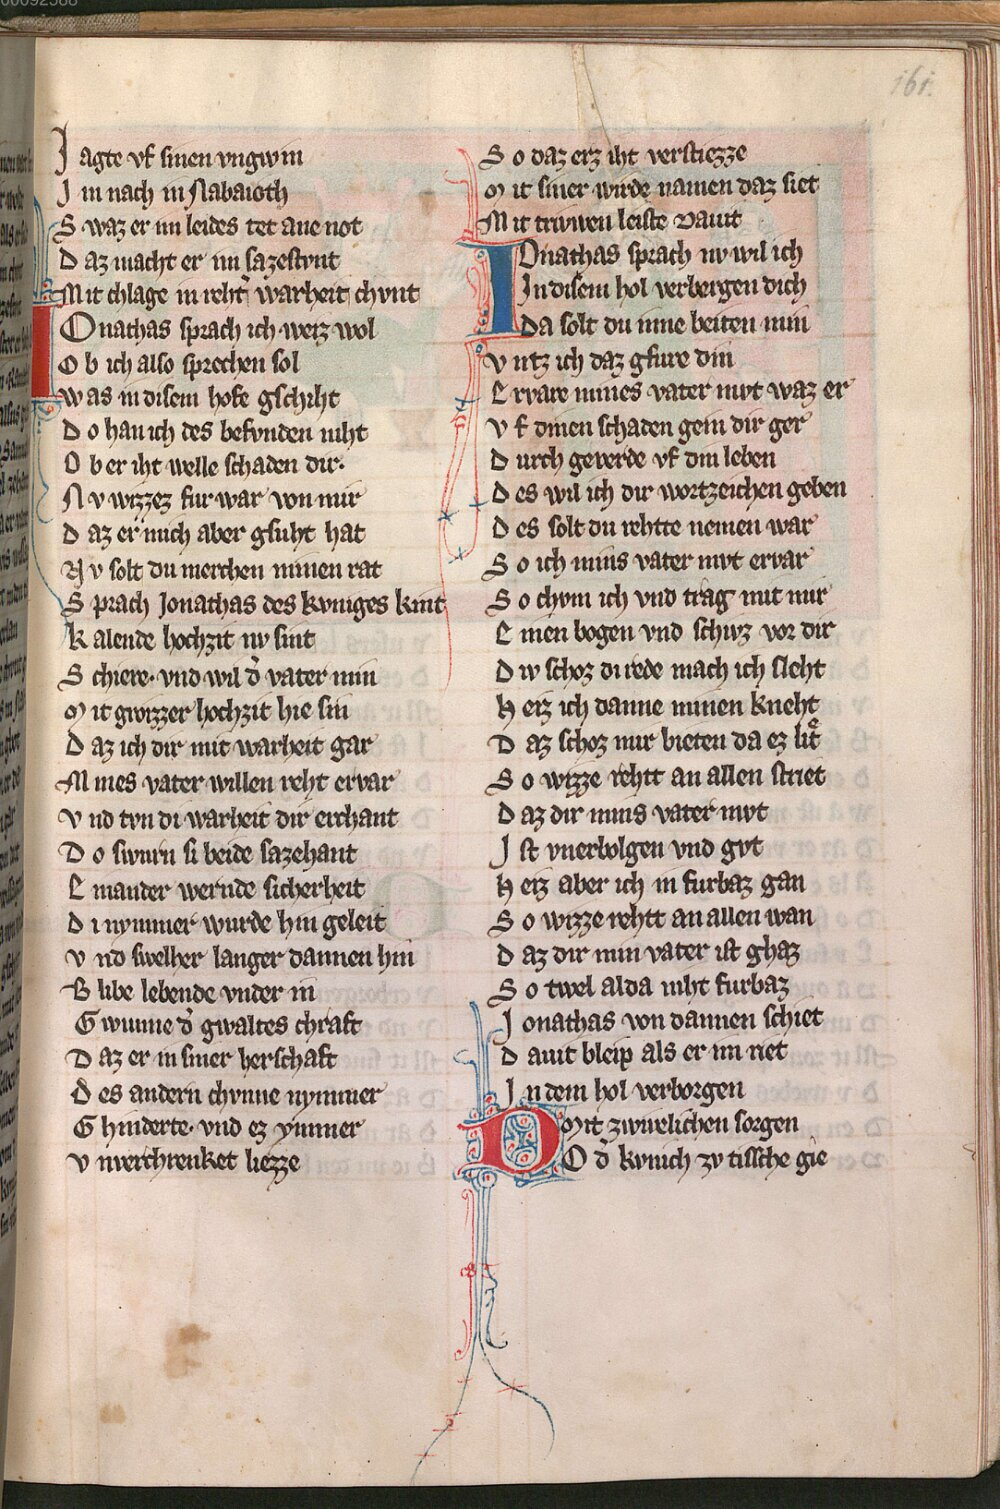 00092588
161.
Jagte vf sinen vngwin
Im nach in Nabaioth
Swaz er im leides tet ane not
Daz macht er im sazestvnt
Mit chlage in reht͛ warheit chvnt
IOnathas sprach ich weiz wol
Ob ich also sprechen sol
was in disem hofe gschiht
Do han ich des befvnden niht
Ob er iht welle schaden dir.
Nv wizzez fur war von mir
Daz er mich aber gsuht hat
Nv solt du merchen minen rat
Sprach Jonathas des kvniges kint
Kalende hochzit nv sint
Schiere. vnd wil d͛ vater min
Mit gwizzer hochzit hie sin
Daz ich dir mit warheit gar
Mines vater willen reht ervar
Vnd tvn di warheit dir erchant
Do swurn si beide sazehant
Einander wernde sicherheit
Di nymmer wurde hin geleit
Vnd swelher langer dannen hin
Blibe lebende vnder in
Gwunne d͛ gwaltes chraft
Daz er in siner herschaft
Des andern chvnne nymmer
Ghinderte. vnd ez ymmer
Vnverchrenket liezze
So daz erz iht verstiezze
Mit siner wirde namen daz siet
Mit trivwen leiste Dauit
IOnathas sprach nv wil ich
In disem hol verbergen dich
Da solt du inne beiten min
Vntz ich daz gfure din
Ervare mines vater mvt waz er
Vf dinen schaden gein dir ger
Durch geverde vf din leben
Des wil ich dir wortzeichen geben
Des solt du rehtte nemen war
So ich mins vater mvt ervar
So chvm ich vnd trag mit mir
Einen bogen vnd schivz vor dir
Div schoz di rede mach ich sleht
Heiz ich danne minen kneht
Daz schoz mir bieten da ez lit
So wizze rehtt an allen striet
Daz dir mins vater mvt
Ist vnerbolgen vnd gvt
Heiz aber ich in furbaz gan
So wizze rehtt an allen wan
Daz dir min vater ist ghaz
So twel alda niht furbaz
Jonathas von dannen schiet
Dauit bleip als er im riet
In dem hol verborgen
Mit zwivelichen sorgen
DO d͛ kvnich zv tissche gie